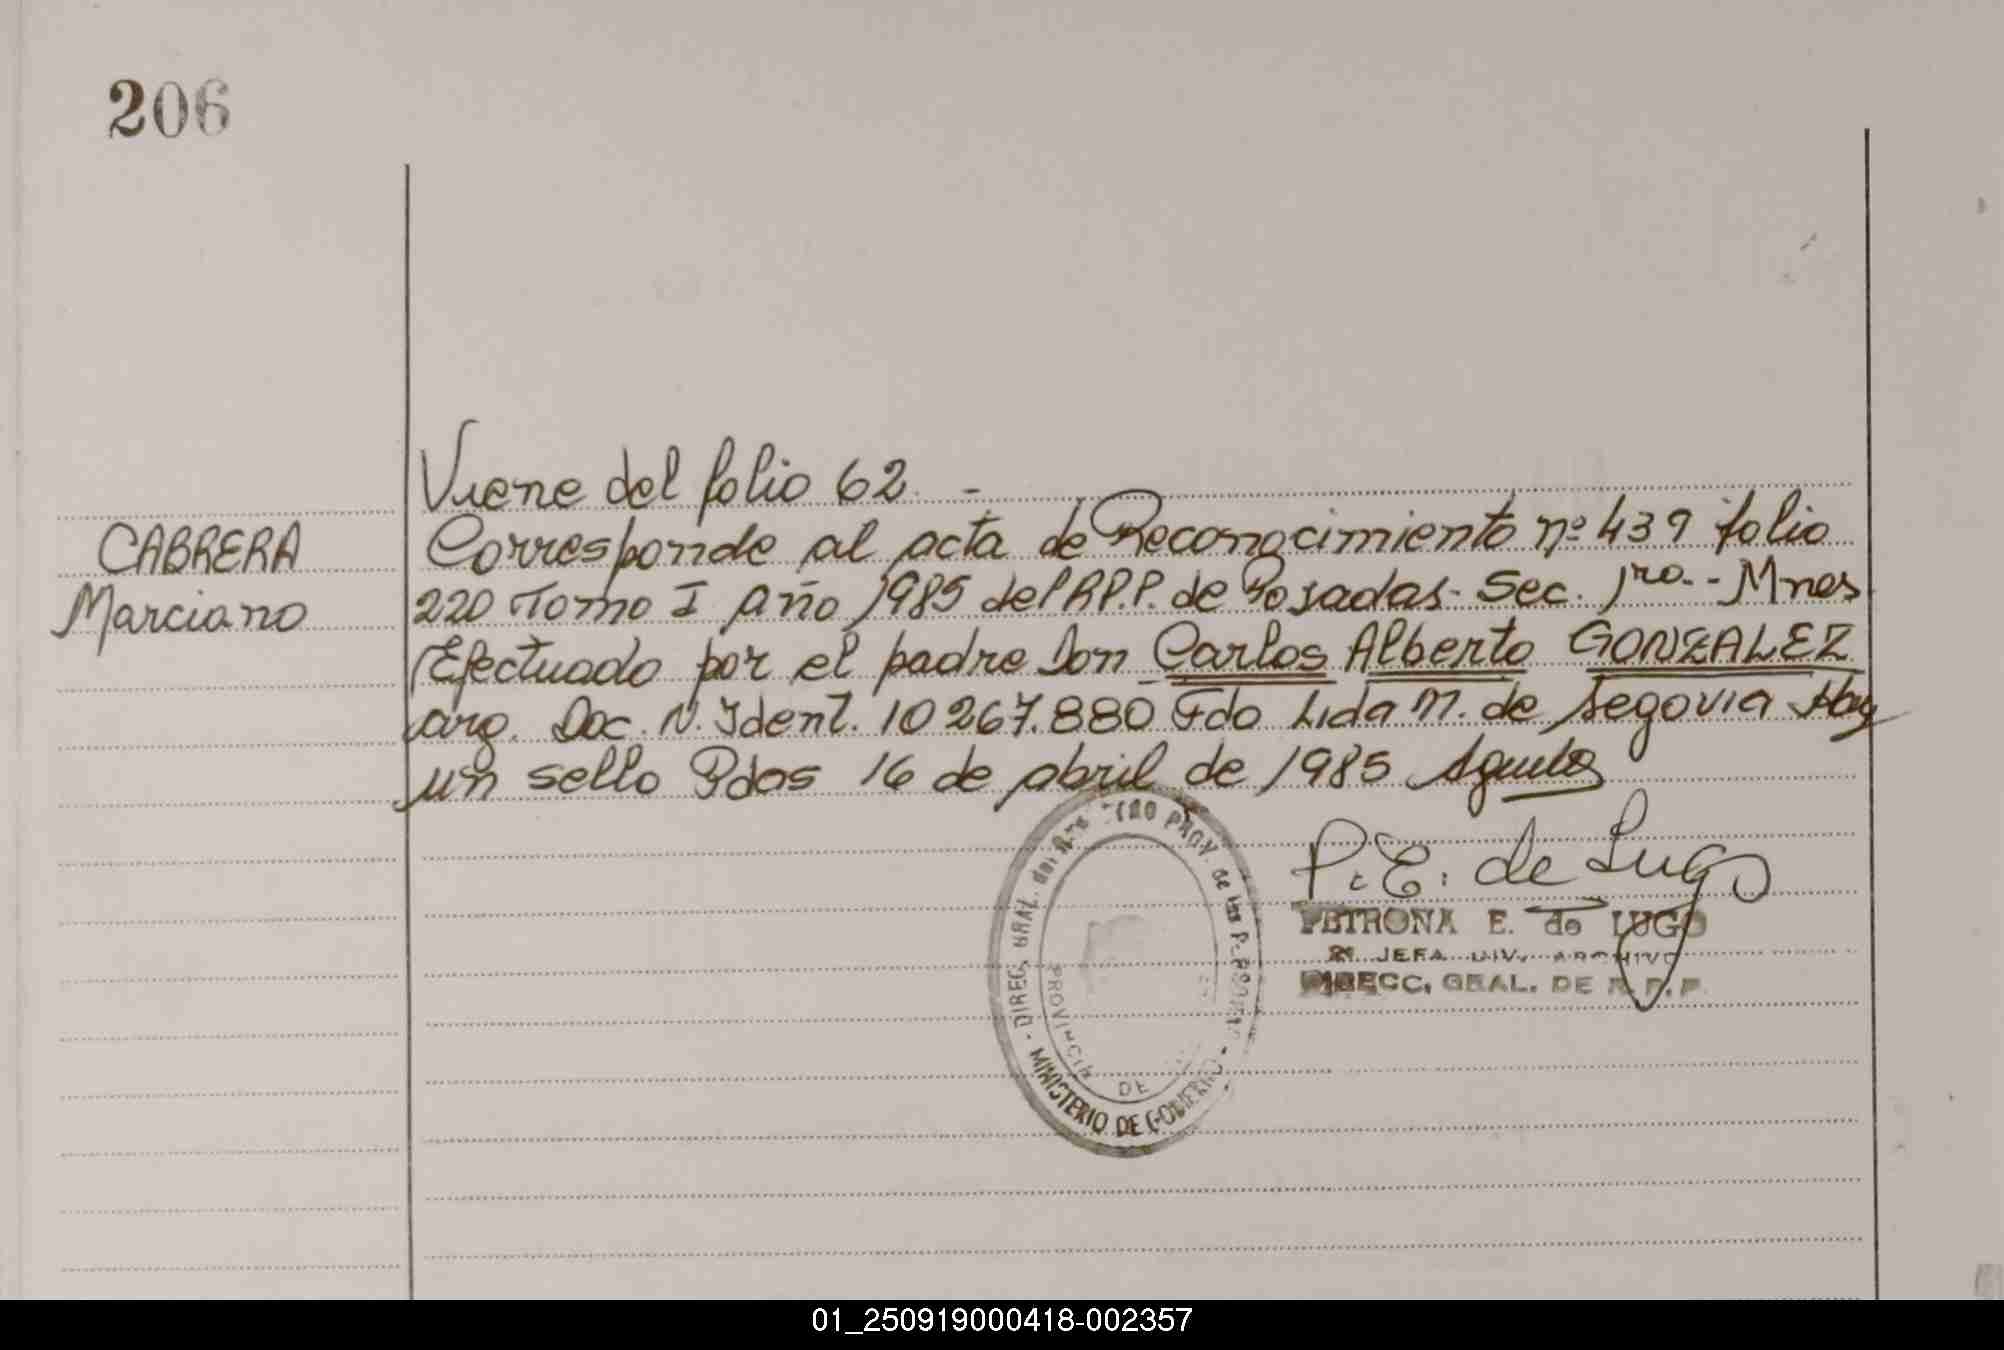 206
Viene del folio 62. -
CABRERA
Marciano
Corresponde al acta de Reconocimiento nº 439 folio
220 Tomo I año 1985 del R.P.P. de Posadas - Sec. 1ro. - Mnes
Efectuado por el padre Don Carlos Alberto GONZALEZ
arg. Doc. N. Ident. 10 267.880 Fdo Lida M. de Segovia Hay
un sello Pdas 16 de abril de 1985
P. E. de Lugo
PETRONA E. de LUGO
JEFA DIV. ARCHIVO
DIRECC. GRAL. DE R. P. P.
- DIREC. GRAL. del PROV. de las PERSONAS -
PROVINCIA DE
MINISTERIO DE GOBIERNO
01_250919000418-002357